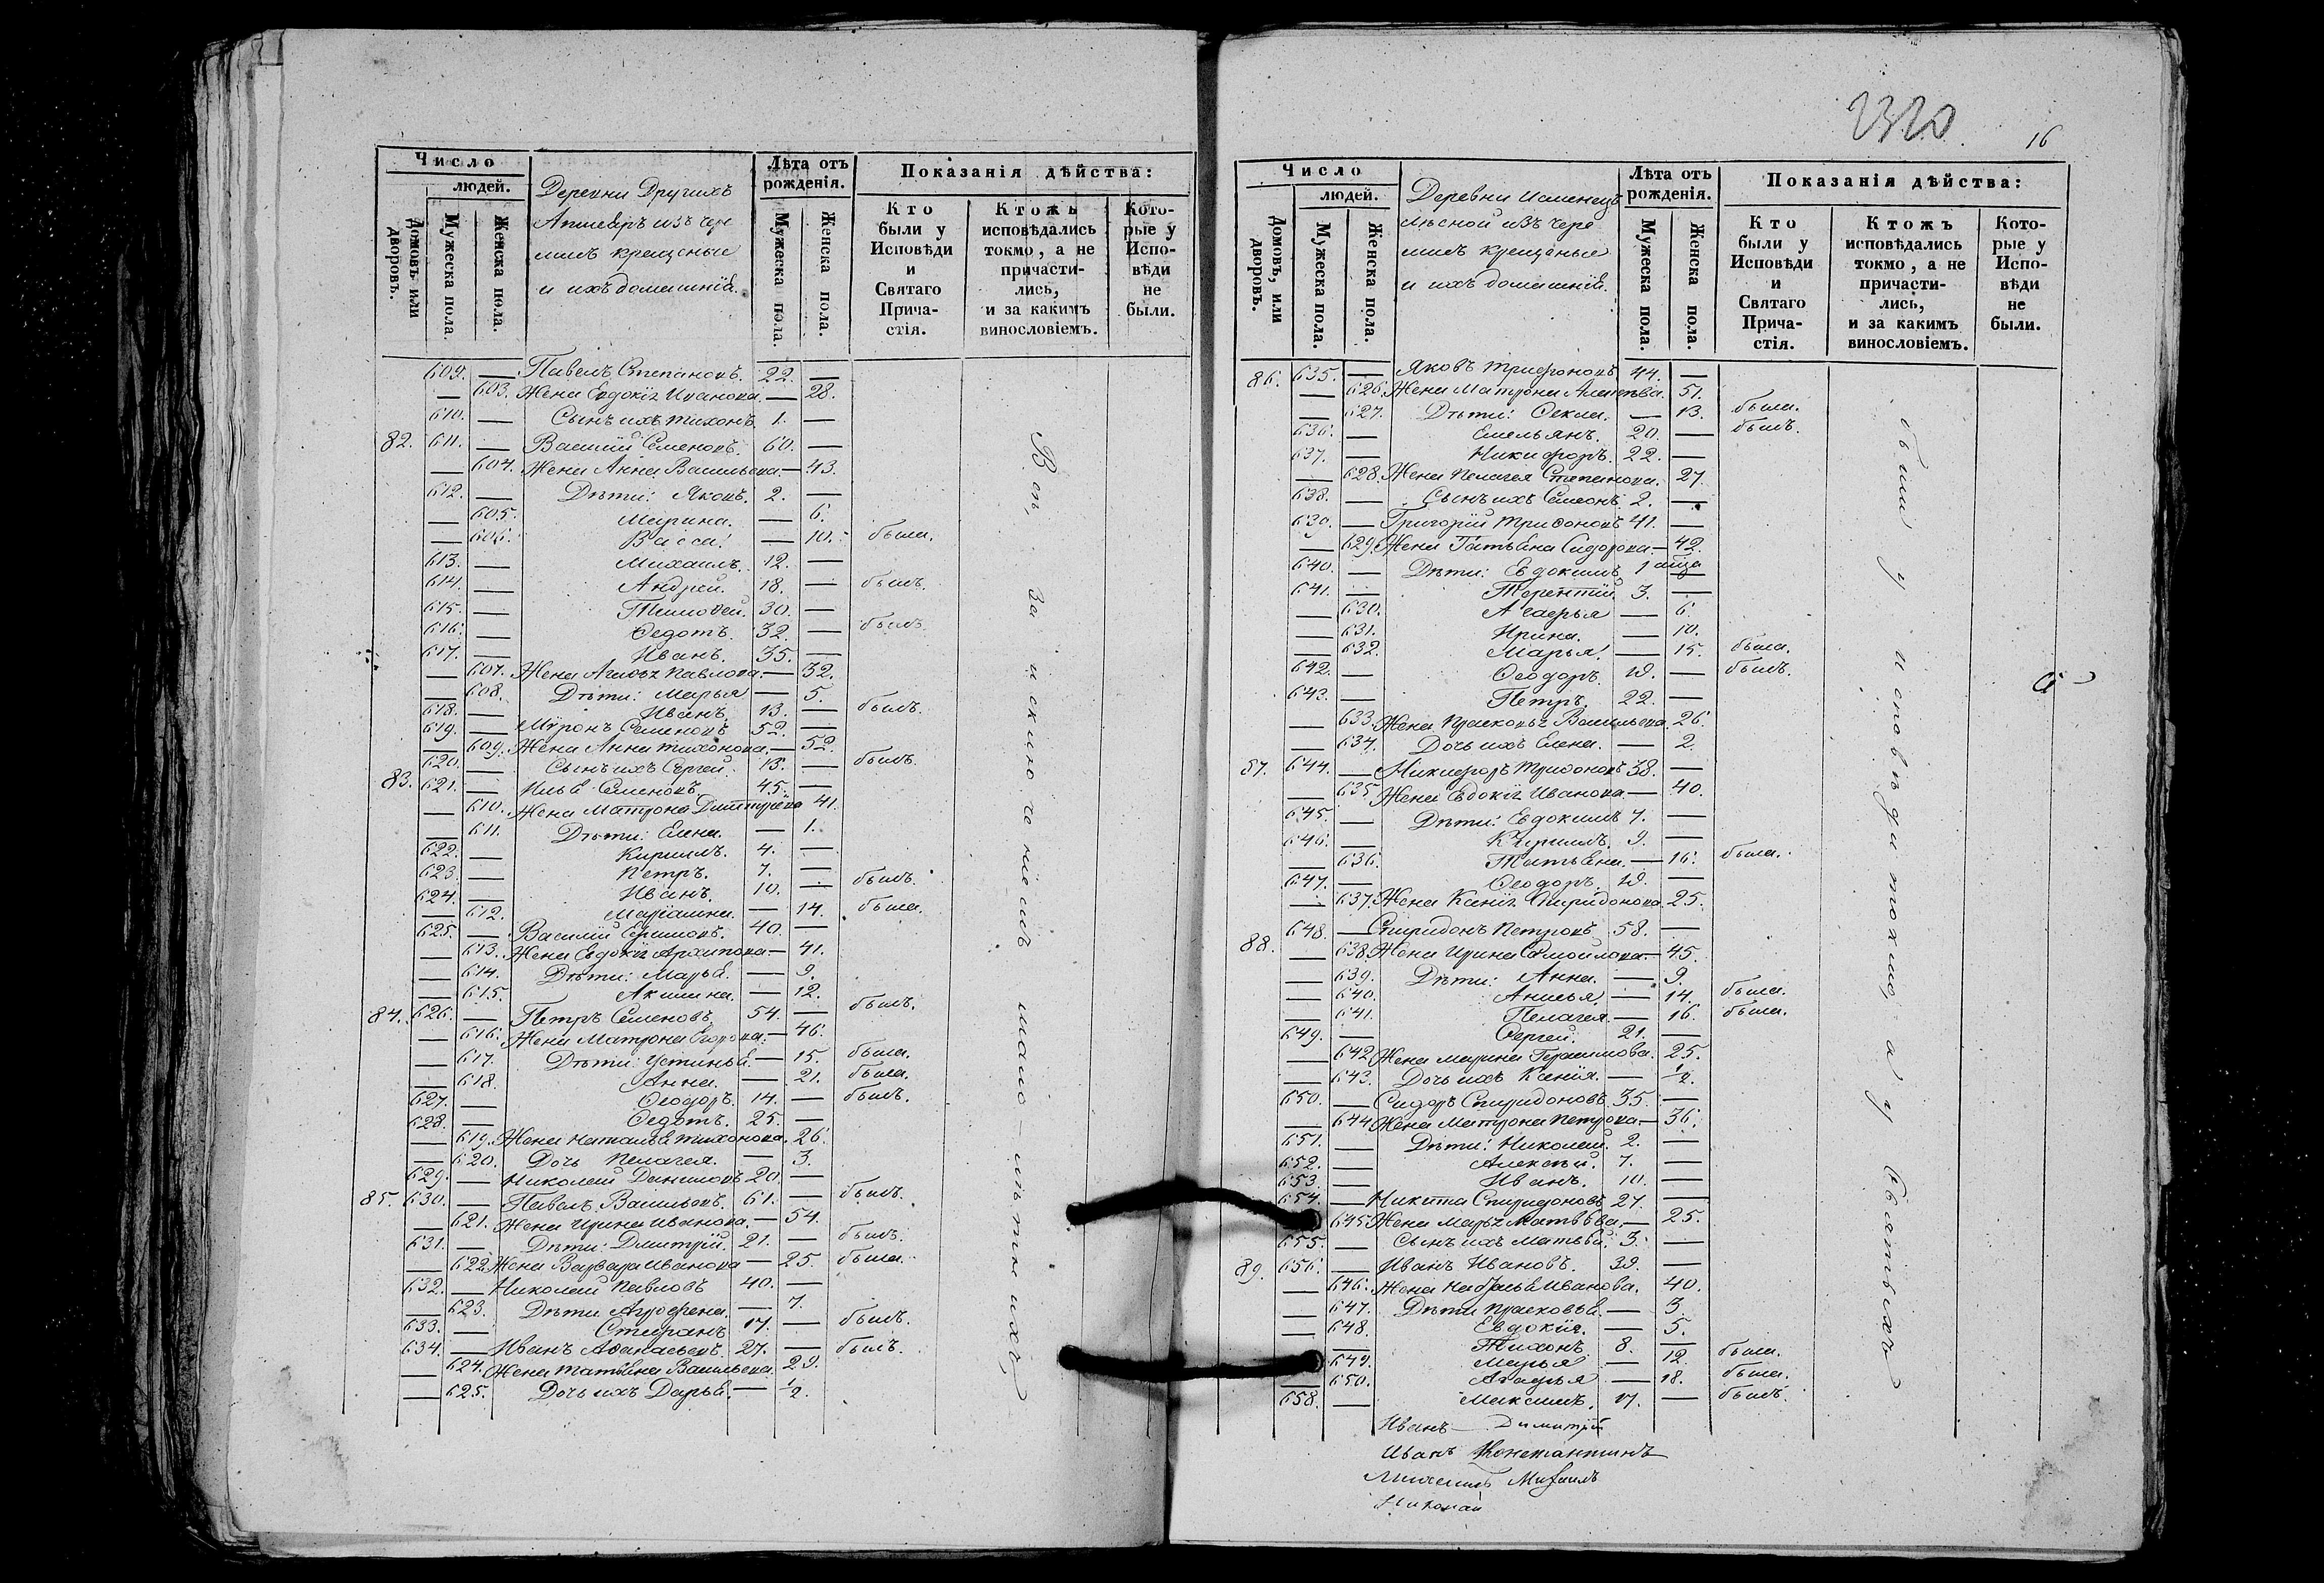 Число
людей.
Домовъ или дворовъ.
Мужеска пола.
Женска пола.
Деревни Другихъ
изъ чере
мисъ крещеные
и ихъ домашніе.
Лѣта отъ
рожденія.
Мужеска пола.
Женска пола.
Показанія дѣйства:
Кто
были у
Исповѣди
и
Святаго
Прича-
стія.
Ктожъ
исповѣдались
токмо, а не
причасти-
лись,
и за какимъ
винословіемъ.
Кото-
рые у
Испо-
вѣди
не
были.
609. — Павелъ Степановъ. 22. —
— 603. Жена Евдокія Иванова. — 28.
610. — Сынъ ихъ Тихонъ 1. —
82. 611. — Василій Семеновъ. 60. —
— 604. Жена Анна Васильева. — 43.
612. — Дѣти: Яковъ. 2. —
— 605. Марина. — 6.
— 606. Васса. — 10. была.
613. — Михаилъ. 12. —
614. — Андрей. 18. — былъ.
615. — Тимофей. 30. —
616. — Федотъ. 32. — былъ.
617. — Иванъ. 35. —
— 607. Жена Павлова. — 32.
— 608. Дѣти: Марья — 5.
618. — Иванъ. 13. — былъ.
619. — Миронъ Семеновъ 52. —
— 609. Жена Анна Тихонова. — 52.
620. — Сынъ ихъ Сергей. 13. — былъ.
83. 621. — Илья Семеновъ. 45. —
— 610. Жена Матрона Дмитріева 41.
— 611. Дѣти: Елена. — 1.
622. — Кирилъ. 4. —
623. — Петръ. 7. —
624. — Иванъ. 10. — былъ.
— 612. Маріамна. — 14. была.
625. — Василій 40. —
— 613. Жена Евдокія Архипова. — 41.
— 614. Дѣти: Марья. — 9.
— 615. Акилина. — 12.
84. 626. — Петръ Семеновъ. 54. — былъ.
— 616. Жена Матрона Егорова. — 46.
— 617. Дѣти: Устинья. — 15. была.
— 618. Анна. — 21. была.
627. — Феодоръ. 14. — былъ.
628. — Федотъ. 25. —
— 619. Жена Наталья Тихонова. 26.
— 620. Дочь Пелагея. — 3.
629. — Николай Даниловъ 20. —
85. 630. — Павелъ Васильевъ. 61. — былъ.
— 621. Жена Ирина Иванова. — 54.
631. — Дѣти: Дмитрій. 21. — былъ.
— 622. Жена Варвара Иванова — 25. была.
632. — Николай Павловъ 40. —
— 623. Дѣти Агрофена. — 7.
633. — Стефанъ 17. — былъ.
634. — Иванъ Афанасьевъ. 27. — былъ.
— 624. Жена Татьяна Васильева. 29.
— 625. Дочь ихъ Дарья. — 1/2.
Всѣ, за исключеніемъ мало-лѣтнихъ,
2320
16
Число
людей.
Домовъ, или дворовъ.
Мужеска пола.
Женска пола.
Деревни Исменецъ
лѣсной изъ чере
мисъ крещеные
и ихъ домашніе.
Лѣта отъ
рожденія.
Мужеска пола.
Женска пола.
Показанія дѣйства:
Кто
были у
Исповѣди
и
Святаго
Прича-
стія.
Ктожъ
исповѣдались
токмо, а не
причасти-
лись,
и за какимъ
винословіемъ.
Кото-
рые у
Испо-
вѣди
не
были.
86. 635. — Яковъ Трифоновъ 44. —
— 626. Жена Матрона Алексѣева. 51.
— 627. Дѣти: Фекла. — 13. была.
636. — Емельянъ. 20. — былъ.
637. — Никифоръ. 22. —
— 628. Жена Пелагея Степанова. 27.
638. — Сынъ ихъ Семенъ 2. —
639. — Григорій Трифоновъ 41. —
— 629. Жена Татьяна Сидорова. — 42.
640. — Дѣти: Евдокимъ 1 —
641. — Терентій. 3. —
— 630. Агафья — 6.
— 631. Ирина. — 10.
— 632. Марья. — 15. была.
642. — Феодоръ. 19. — былъ.
643. — Петръ. 22. —
— 633. Жена Прасковья Васильева. 26.
— 634. Дочь ихъ Елена. — 2.
87. 644. — Никифоръ Трифоновъ 38. —
— 635. Жена Евдокія Иванова. — 40.
645. — Дѣти: Евдокимъ 7. —
646. — Кирилъ. 9. —
— 636. Татьяна. — 16. была.
647. — Феодоръ. 19. —
— 637. Жена Ксенія Спиридонова. 25.
88. 648. — Спиридонъ Петровъ 58. —
— 638. Жена Ирина Самойлова. — 45.
— 639. Дѣти: Анна. — 9.
— 640. Анисья. — 14. была.
— 641. Пелагея. — 16. была.
649. — Сергей. 21. —
— 642. Жена Марина Герасимова. 25.
— 643. Дочь ихъ Ксенія. — 1/2.
650. — Сидоръ Спиридоновъ 35. —
— 644. Жена Матрона Петрова. — 36.
651. — Дѣти: Николай. 2. —
652. — Алексѣй. 7. —
653. — Иванъ. 10. —
654. — Никита Спиридоновъ 27. —
645. Жена Марья Матвѣева. — 25.
655. — Сынъ ихъ Матвѣй. 3. —
89. 656. — Иванъ Ивановъ. 39. —
— 646. Жена Иванова. 40.
— 647. Дѣти Прасковья. — 3.
— 648. Евдокія. — 5.
— Тихонъ. 8. —
— 649. Марья — 12. была.
— 650. Агафья — 18. была.
658. — Максимъ. 17. — былъ.
были у исповѣди токмо, а у Святыхъ
Иванъ — Димитрій
Иванъ Константинъ
Михаилъ
Николай